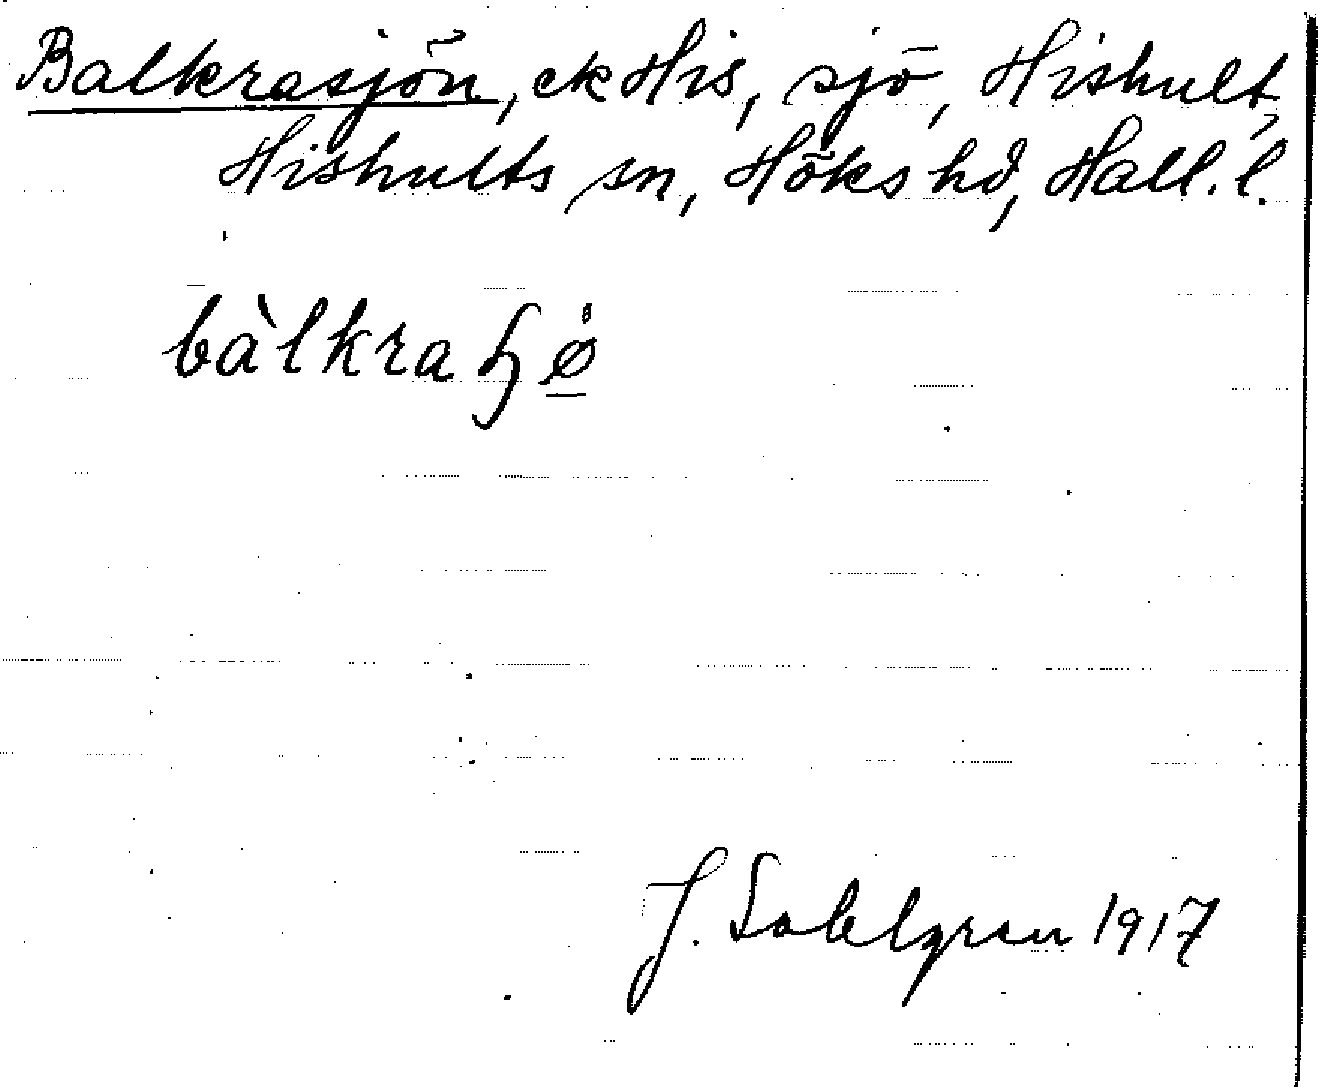 Balkrasjön, ek His, sjö, Hishult,
Hishults sn, Höks hd, Hall. l.
bàlkra ɧø̀
J. Sahlgren 1917